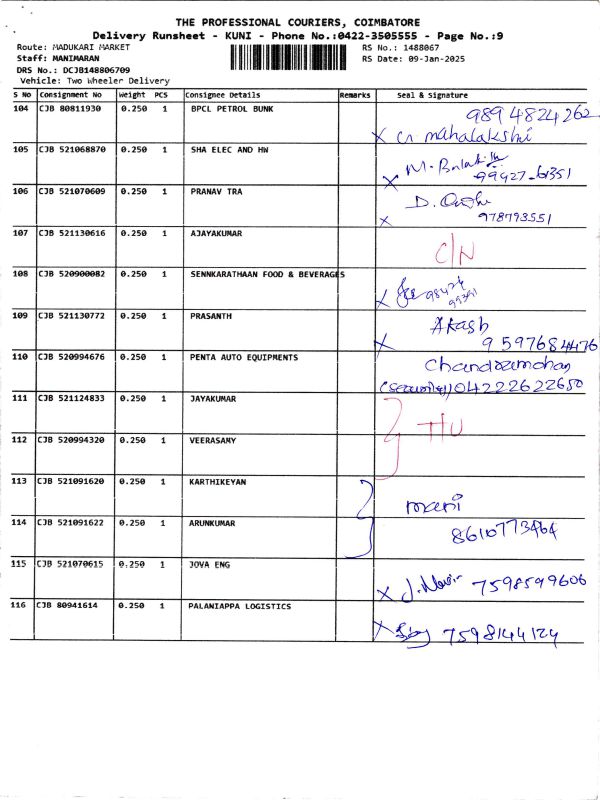 THE PROFESSIONAL COURIERS, COIMBATORE
Delivery Runsheet - KUNI - Phone No.:0422-3505555 - Page No.:9
Route: MADUKARI MARKET RS No.: 1488067
Staff: MANIMARAN RS Date: 09-Jan-2025
DRS No.: DCJB148806709
Vehicle: Two Wheeler Delivery
S No Consignment No Weight PCS Consignee Details Remarks Seal & Signature
104 CJB 80811930 0.250 1 BPCL PETROL BUNK 9894824262
X G mahalakshmi
105 CJB 521068870 0.250 1 SHA ELEC AND HW
X 99427-61351
106 CJB 521070609 0.250 1 PRANAV TRA D.
X 978793551
107 CJB 521130616 0.250 1 AJAYAKUMAR C/N
108 CJB 520900082 0.250 1 SENNKARATHAAN FOOD & BEVERAGES
X 98424
99391
109 CJB 521130772 0.250 1 PRASANTH Akash
X 9597684476
110 CJB 520994676 0.250 1 PENTA AUTO EQUIPMENTS Chandramohan
(security) 04222622650
111 CJB 521124833 0.250 1 JAYAKUMAR
112 CJB 520994320 0.250 1 VEERASAMY
113 CJB 521091620 0.250 1 KARTHIKEYAN mani
114 CJB 521091622 0.250 1 ARUNKUMAR 8610773464
115 CJB 521070615 0.250 1 JOVA ENG
X 7598599606
116 CJB 80941614 0.250 1 PALANIAPPA LOGISTICS
X 7598144124